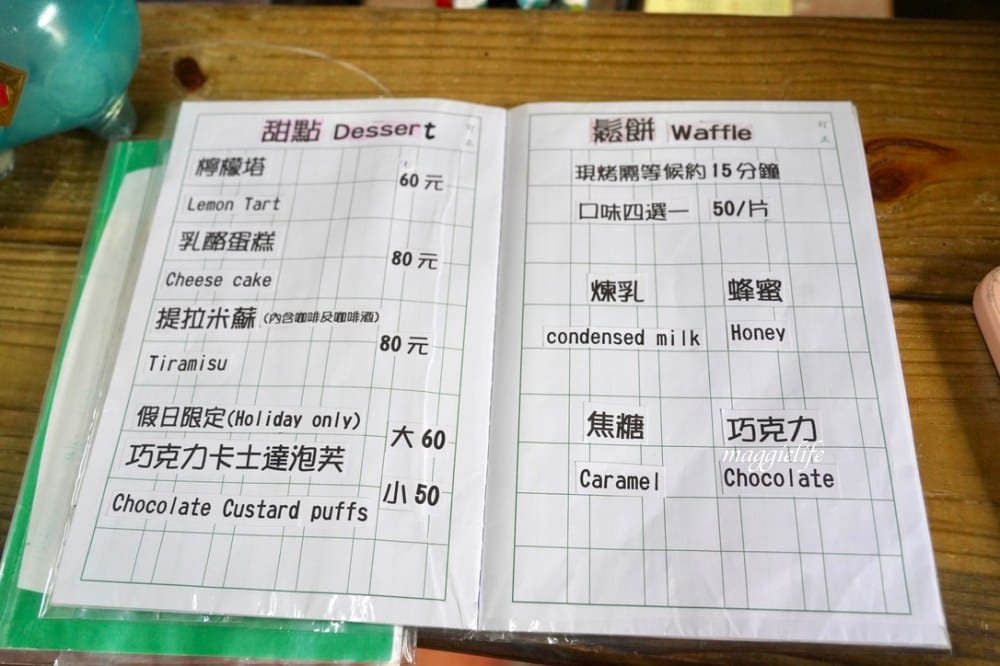 甜點 Dessert
檸檬塔
60元
Lemon Tart
乳酪蛋糕
80元
Cheese cake
提拉米蘇(內含咖啡及咖啡酒)
80元
Tiramisu
假日限定(Holiday only)
大60
巧克力卡士達泡芙
小50
Chocolate Custard puffs
鬆餅 Waffle
現烤需等候約15分鐘
口味四選一 50/片
煉乳 蜂蜜
condensed milk Honey
焦糖 巧克力
maggielife
Caramel Chocolate